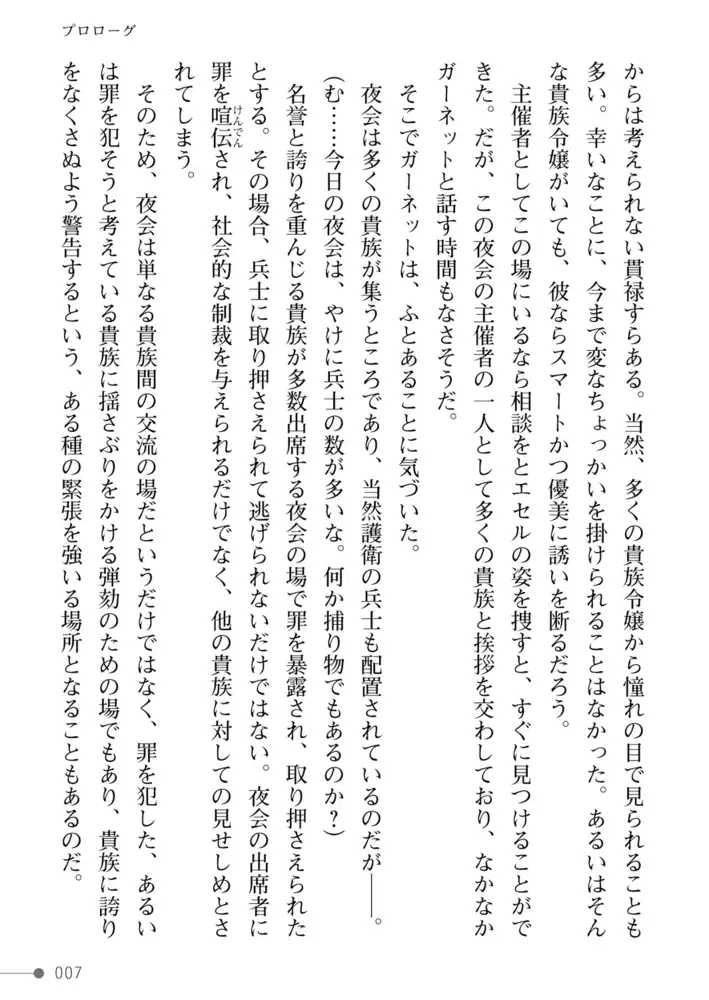 プロローグ
からは考えられない貫禄すらある。当然、多くの貴族令嬢から憧れの目で見られることも
多い。幸いなことに、今まで変なちょっかいを掛けられることはなかった。あるいはそん
な貴族令嬢がいても、彼ならスマートかつ優美に誘いを断るだろう。
主催者としてこの場にいるなら相談をとエセルの姿を捜すと、すぐに見つけることがで
きた。だが、この夜会の主催者の一人として多くの貴族と挨拶を交わしており、なかなか
ガーネットと話す時間もなさそうだ。
そこでガーネットは、ふとあることに気づいた。
夜会は多くの貴族が集うところであり、当然護衛の兵士も配置されているのだが――。
(む……今日の夜会は、やけに兵士の数が多いな。何か捕り物でもあるのか?)
名誉と誇りを重んじる貴族が多数出席する夜会の場で罪を暴露され、取り押さえられた
とする。その場合、兵士に取り押さえられて逃げられないだけではない。夜会の出席者に
罪を喧伝され、社会的な制裁を与えられるだけでなく、他の貴族に対しての見せしめとさ
けんでん
れてしまう。
そのため、夜会は単なる貴族間の交流の場だというだけではなく、罪を犯した、あるい
は罪を犯そうと考えている貴族に揺さぶりをかける弾劾のための場でもあり、貴族に誇り
をなくさぬよう警告するという、ある種の緊張を強いる場所となることもあるのだ。
007